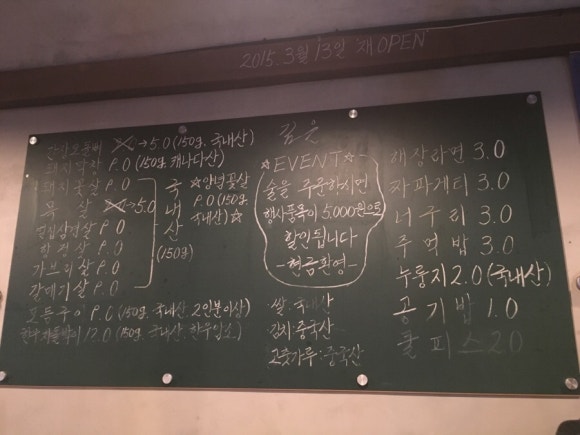 2015. 3월 13일 재OPEN
→5.0 (150g. 국내산)
돼지막창 9.0 (150g. 캐나다산)
돼지꽃살 9.0
목살 →5.0
9.0
항정살 9.0
가브리살 9.0
갈매기살 9.0
국내산
(150g)
☆양념꽃살
9.0 (150g
국내산)☆
모듬구이 9.0 (150g. 국내산. 2인분이상)
12.0 (150g. 국내산. 한우암소)
☆EVENT☆
술을 주문하시면
행사품목이 5,000원으로
할인됩니다
-현금환영-
쌀. 국내산
김치. 중국산
고춧가루. 중국산
라면 3.0
짜파게티 3.0
너구리 3.0
주먹밥 3.0
누룽지 2.0 (국내산)
공기밥 1.0
쿨피스 2.0